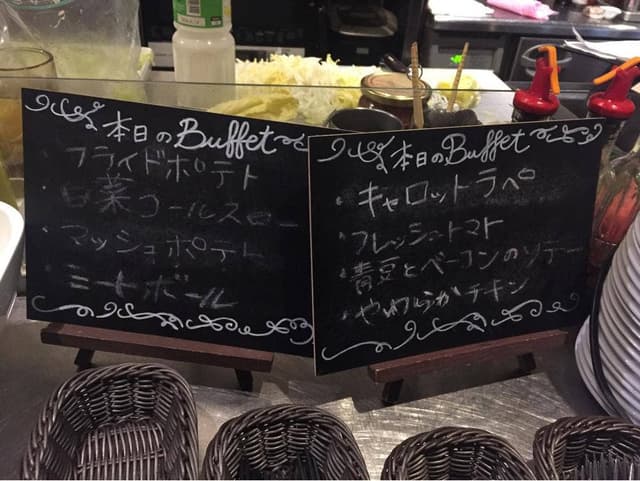 本日のBuffet
・フライドポテト
・白菜コールスロー
・マッシュポテト
・ミートボール
本日のBuffet
・キャロットラペ
・フレッシュトマト
・青豆とベーコンのソテー
・やわらかチキン